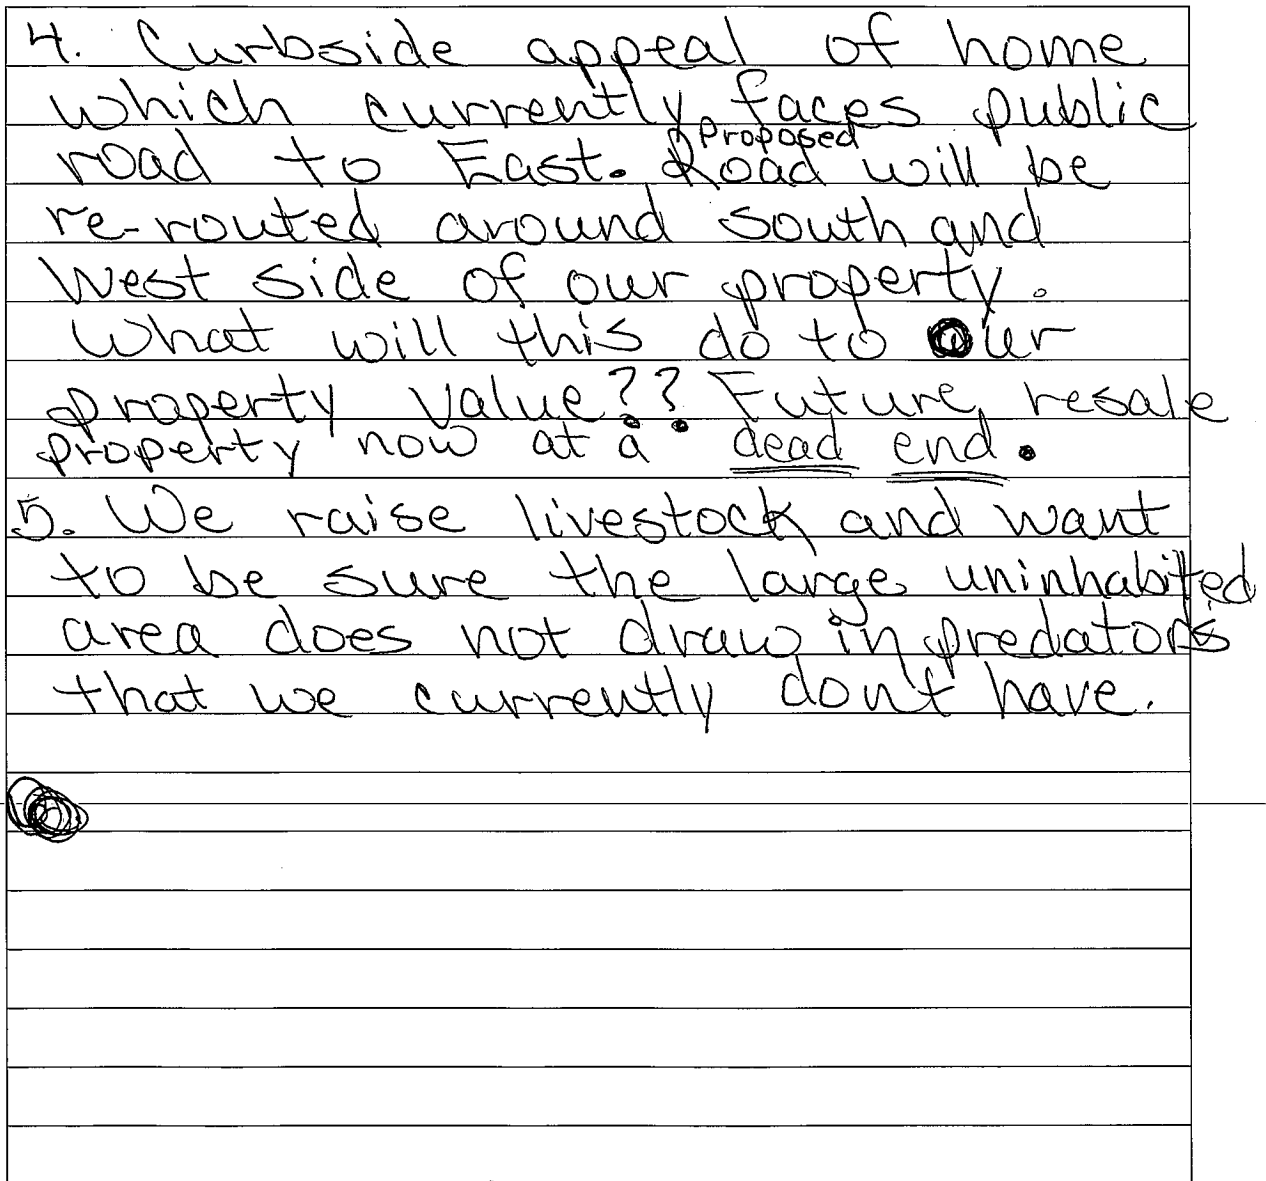 4. Curbside appeal of home
which currently faces public
road to East. Proposed Road will be
re-routed around south and
West side of our property.
What will this do to our
property value?? Future resale
property now at a dead end.
5. We raise livestock and want
to be sure the large uninhabited
area does not draw in predators
that we currently don't have.